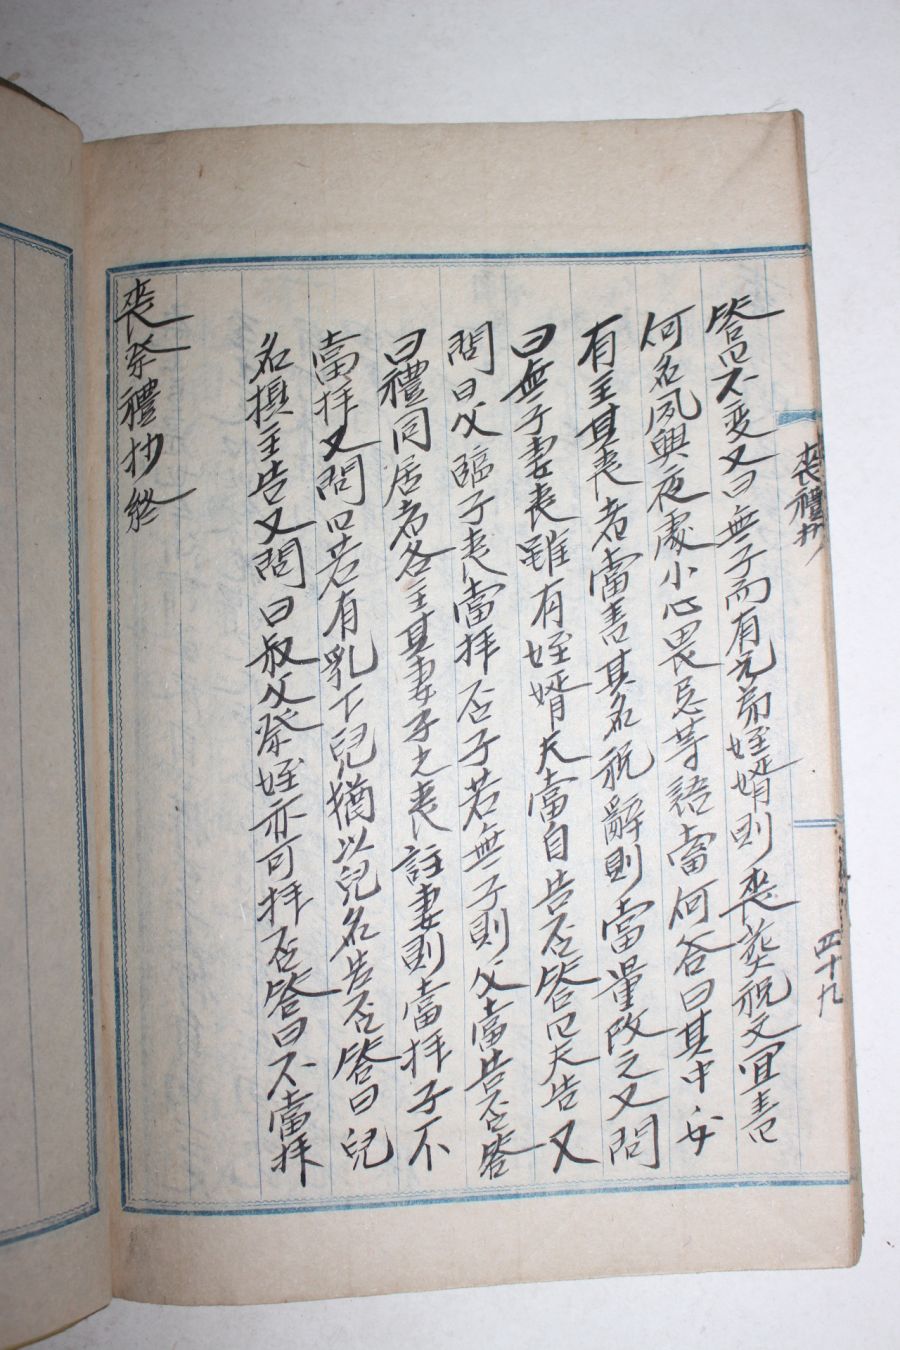 答曰不变又曰無子而有兄弟姪婿則喪葬祝文宜書
何名夙興夜處小心畏忌等語當何答曰其中必
有主其喪者當書其名祝辭則當量改之又問
曰無子妻喪雖有姪婿夫當自告否答曰夫告又
問曰父臨子喪當拜否子若無子則父當告否答
曰禮同居者各主其妻子之喪註妻則當拜子不
當拜又問曰若有乳下兒猶以兒名告否答曰兒
名攝主告又問曰叔父祭姪亦可拜否答曰不當拜
喪祭禮抄終
喪禮抄
四十九